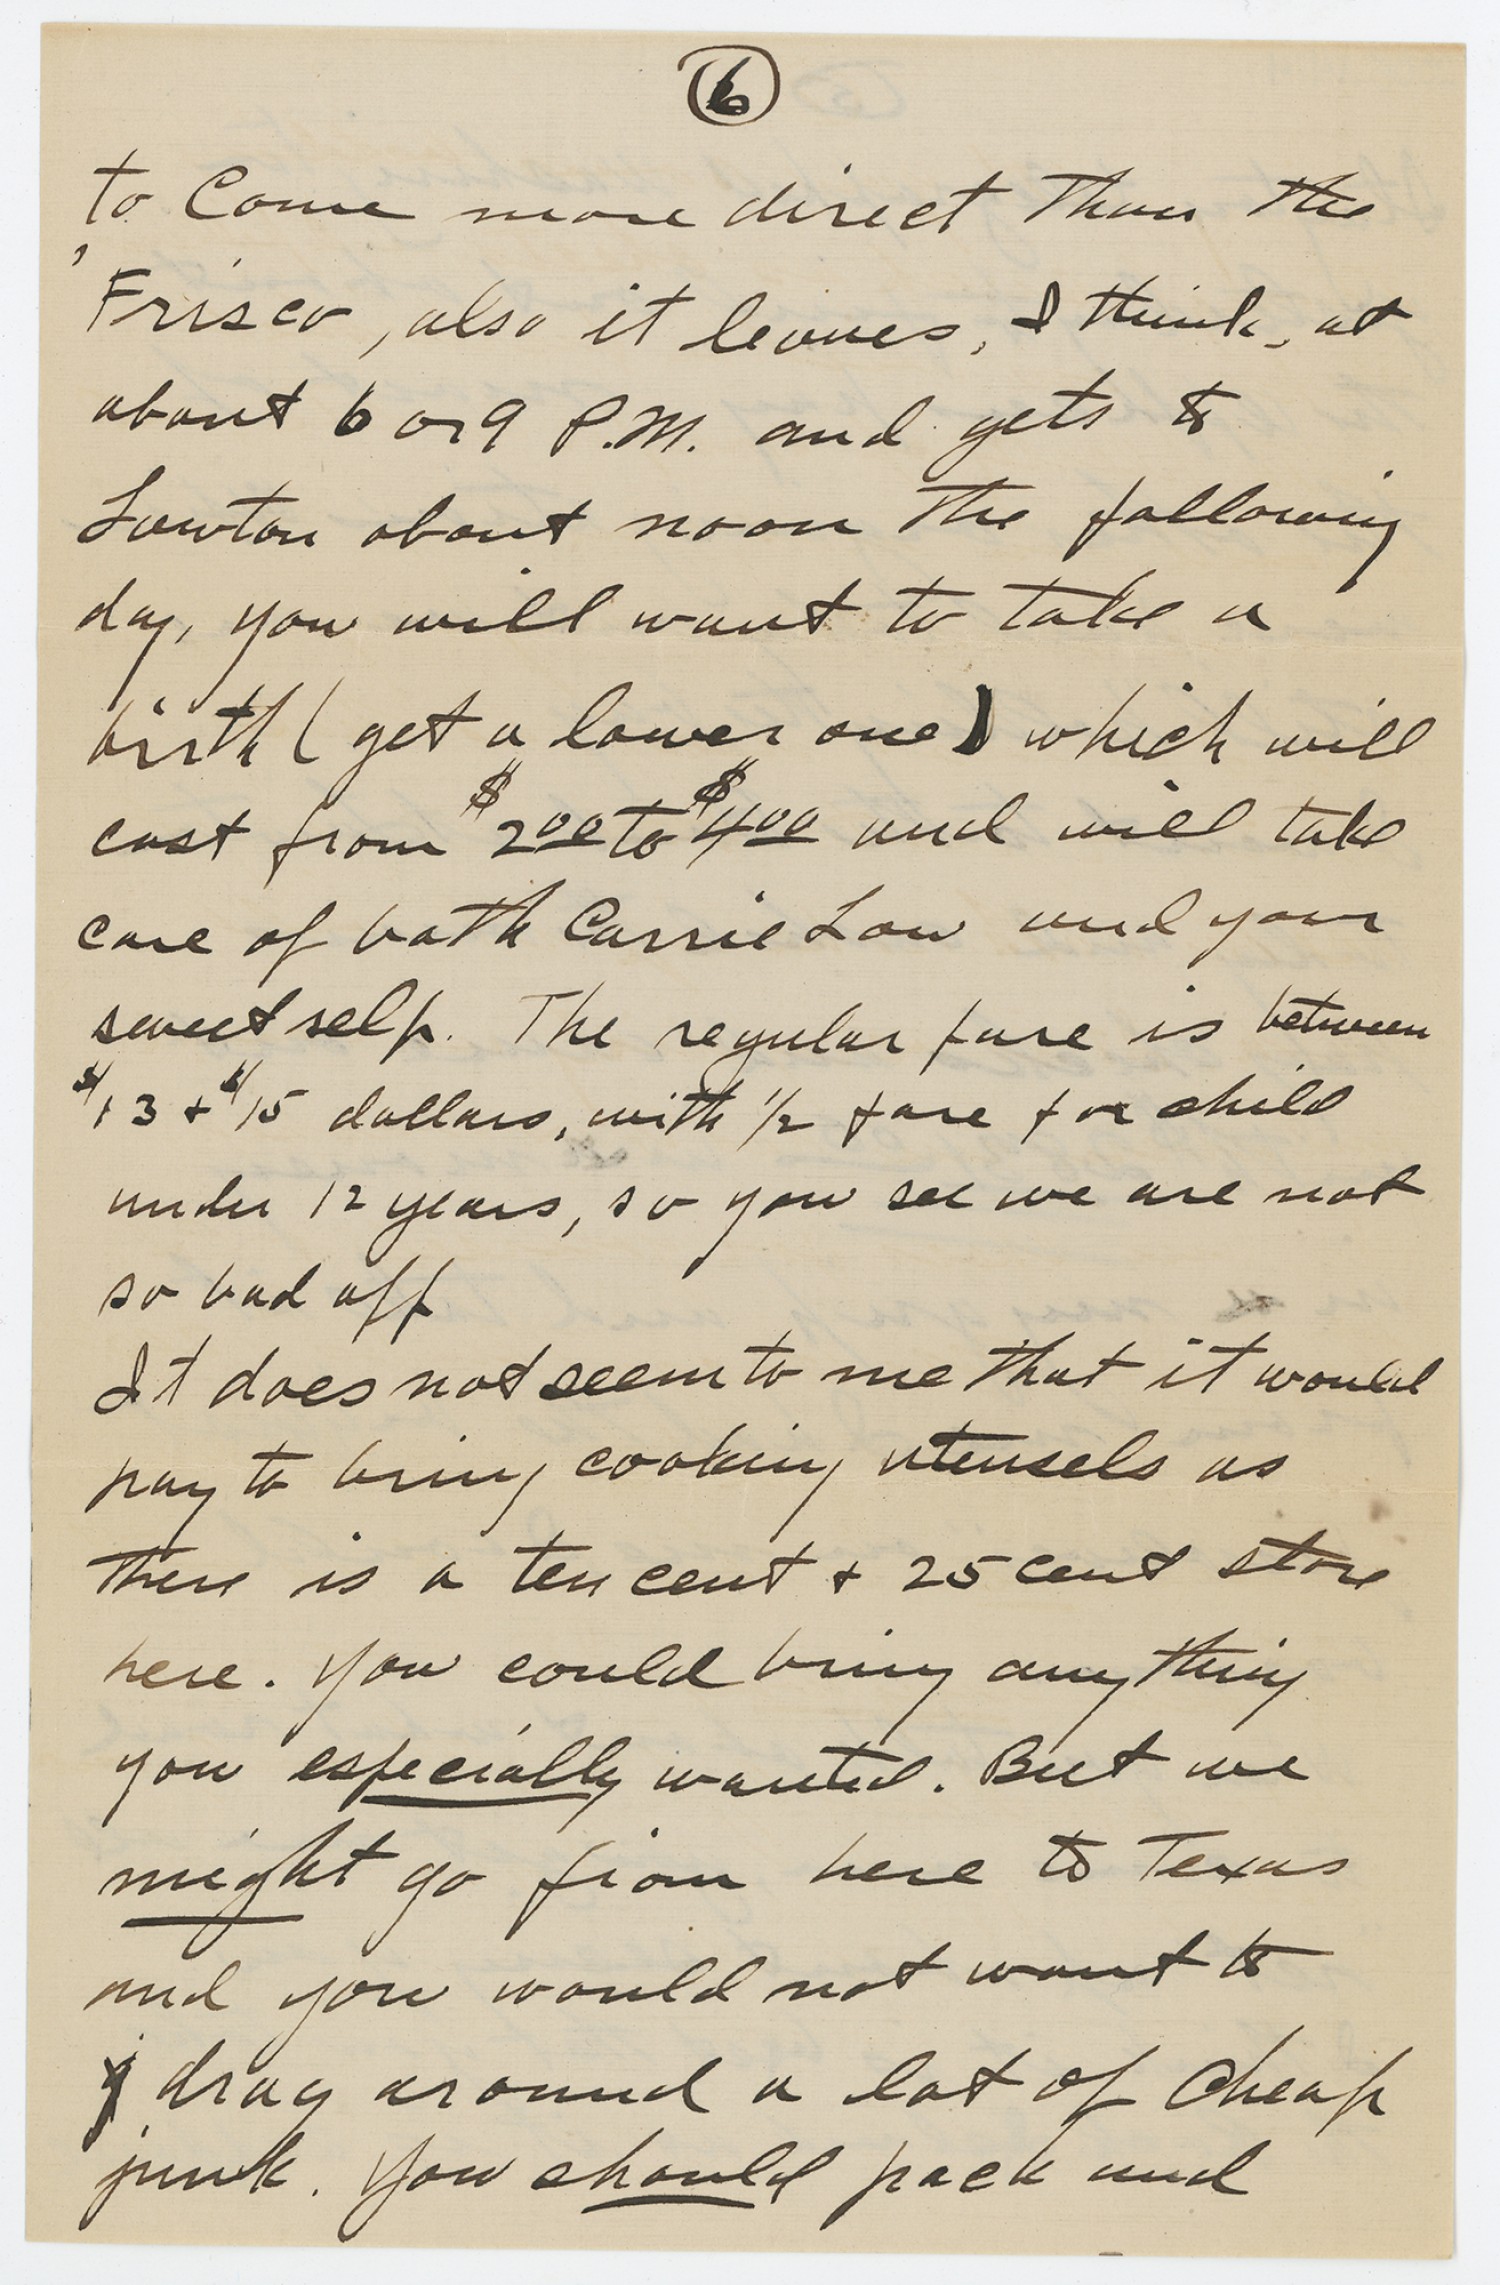 6
to Come more direct than the
'Frisco, also it leaves, I think, at
about 6 or 9 P.M. and gets to
Lawton about noon the following
day, you will want to take a
birth (get a lower one) which will
cost from $2 00 to $4 00 and will take
care of both Carrie Low and your
sweet self. The regular fare is between
$13 + $15 dollars, with 1/2 fare for child
under 12 years, so you see we are not
so bad off
It does not seem to me that it would
pay to bring cooking utensels as
there is a ten cent + 25 cent store
here. You could bring anything
you especially wanted. But we
might go from here to Texas
and you would not want to
drag around a lot of cheap
junk. You should pack and